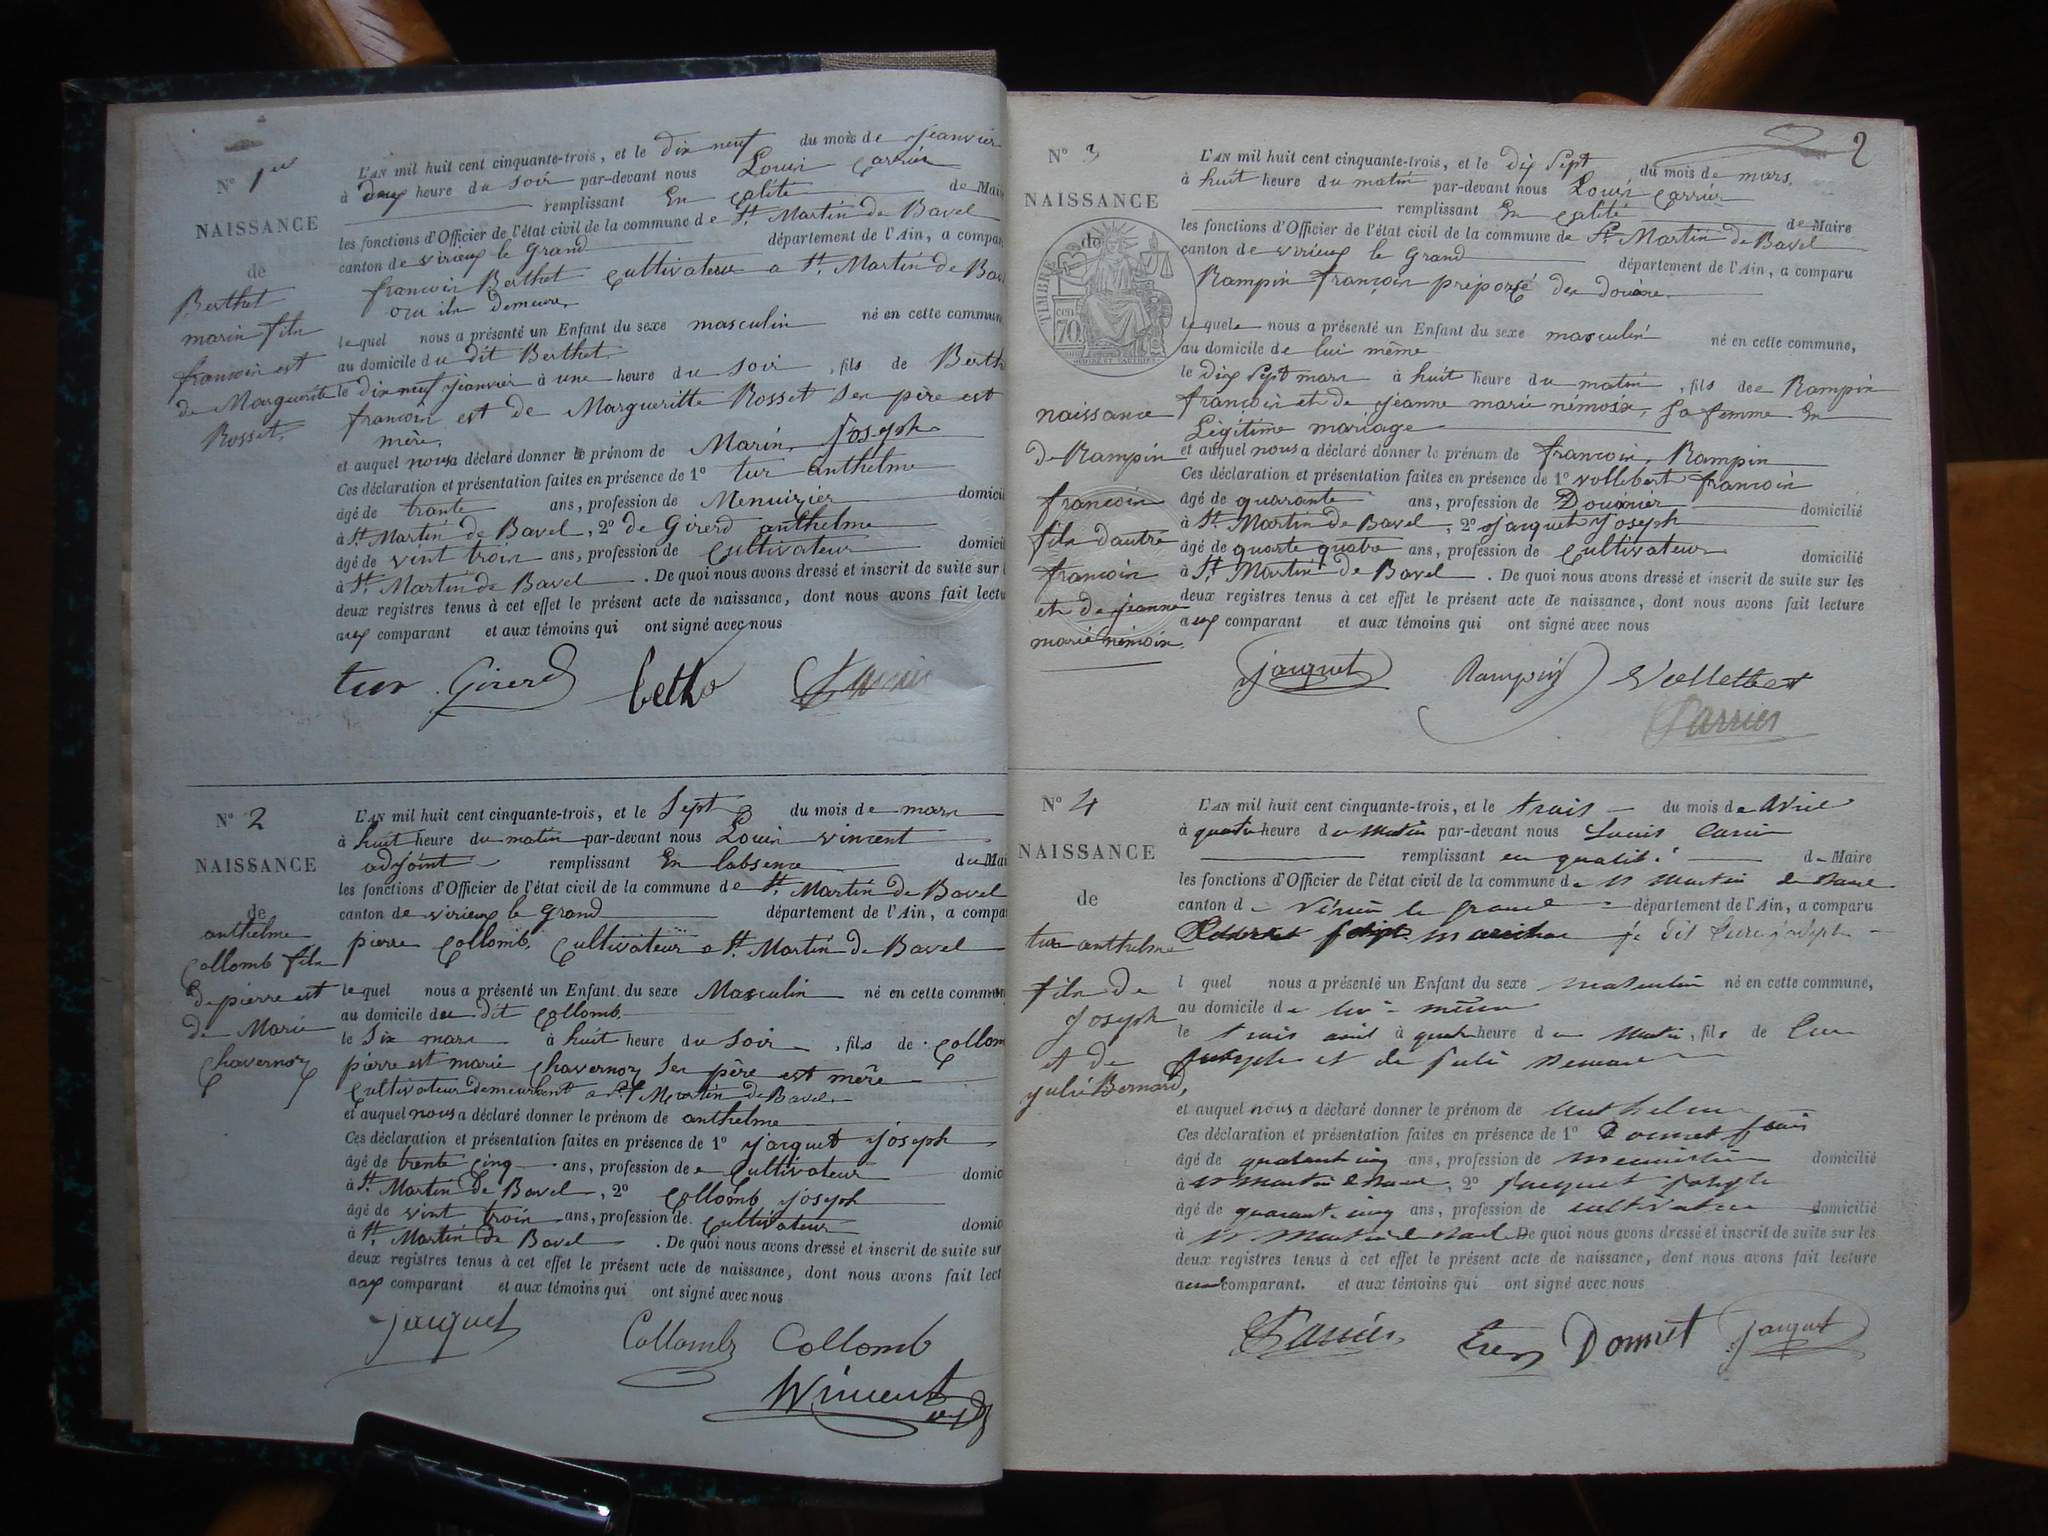 N° 1er
NAISSANCE
de
Berthet
marin fils
francoin est
de Marguerite
Rosset
L'AN mil huit cent cinquante-trois, et le dix neuf du mois de jeanvier
à deux heure du soir par-devant nous Louis Carrier
remplissant En qalité de Maire
les fonctions d'Officier de l'état civil de la commune de St. Martin de Bavel
canton de virieux le Grand département de l'Ain, a compar
francoin Berthet Cultivateur a St. Martin de Bav
ou ils demeure
lequel nous a présenté un Enfant du sexe masculin né en cette commune
au domicile du dit Berthet
le dix neuf jeanvier à une heure du soir, fils de Berth
francoin est de Margueritte Rosset Ses père est
mère.
et auquel nous a déclaré donner le prénom de Marin, Joseph
Ces déclaration et présentation faites en présence de 1° tur anthelme
âgé de trante ans, profession de Menuizier domicil
à St. Martin de Bavel, 2° de Girerd anthelme
âgé de vint troin ans, profession de Cultivateur domicil
à St. Martin de Bavel. De quoi nous avons dressé et inscrit de suite sur l
deux registres tenus à cet effet le présent acte de naissance, dont nous avons fait lectu
aux comparant et aux témoins qui ont signé avec nous
tur Girerd Carrier
N° 2
NAISSANCE
de
anthelme
Collomb fils
de pierre est
de Marie
Chavernoz
L'AN mil huit cent cinquante-trois, et le Sept du mois de mars
à huit heure du matin par-devant nous Louis vincent
adjoint remplissant En labsence du Mai
les fonctions d'Officier de l'état civil de la commune de St. Martin de Bavel
canton de virieux le Grand département de l'Ain, a compa
pierre Collomb, Cultivateur a St. Martin de Bavel
lequel nous a présenté un Enfant du sexe Masculin né en cette commun
au domicile du dit Collomb
le Six mars à huit heure du Soir, fils de Collom
pierre est marie Chavernoz Ses père est mère
Cultivateur demeurant a St Martin de Bavel
et auquel nous a déclaré donner le prénom de anthelme
Ces déclaration et présentation faites en présence de 1° jacquet joseph
âgé de trente cinq ans, profession de Cultivateur domic
à St. Martin de Bavel, 2° Collomb joseph
âgé de vint troin ans, profession de Cultivateur domic
à St. Martin de Bavel. De quoi nous avons dressé et inscrit de suite sur
deux registres tenus à cet effet le présent acte de naissance, dont nous avons fait lect
aux comparant et aux témoins qui ont signé avec nous
jacquet Collomb Collomb
Wincent
2
N° 3
NAISSANCE
de
TIMBRE
70
naissance
de Rampin
francoin
fils dautre
francoin
et de jeanne
marie némoin
L'AN mil huit cent cinquante-trois, et le dix Sept du mois de mars.
à huit heure du matin par-devant nous Louis Carrier
remplissant En qalité de Maire
les fonctions d'Officier de l'état civil de la commune de St. Martin de Bavel
canton de virieux le Grand département de l'Ain, a comparu
Rampin françoin préposé des douane
lequel nous a présenté un Enfant du sexe masculin né en cette commune,
au domicile de lui même
le dix Sept mars à huit heure du matin, fils de Rampin
françoin et de jeanne marie némoin, Sa femme En
Légitime mariage
et auquel nous a déclaré donner le prénom de francoin, Rampin
Ces déclaration et présentation faites en présence de 1° vollebert francoin
âgé de quarante ans, profession de Douanier domicilié
à St. Martin de Bavel, 2° jacquet joseph
âgé de quarte quatre ans, profession de Cultivateur domicilié
à St. Martin de Bavel. De quoi nous avons dressé et inscrit de suite sur les
deux registres tenus à cet effet le présent acte de naissance, dont nous avons fait lecture
aux comparant et aux témoins qui ont signé avec nous
jacquet Rampin
Carrier
N° 4
NAISSANCE
de
tur anthelme
fils de
Joseph
et de
julie Bernard,
L'AN mil huit cent cinquante-trois, et le trois du mois de Avril
à quatre heure du Matin par-devant nous Louis Carrier
remplissant en qualité de Maire
les fonctions d'Officier de l'état civil de la commune de St Martin de Bavel
canton de Virieu le grand département de l'Ain, a comparu
l quel nous a présenté un Enfant du sexe masculin né en cette commune,
au domicile de lui-même
le trois avril à quatre heure du Matin, fils de
joseph et de Julie Bernard
et auquel nous a déclaré donner le prénom de Anthelme
Ces déclaration et présentation faites en présence de 1° Donnet
âgé de ans, profession de domicilié
à St Martin de Bavel, 2° Jacquet Joseph
âgé de quarante cinq ans, profession de cultivateur domicilié
à St Martin de Bavel De quoi nous avons dressé et inscrit de suite sur les
deux registres tenus à cet effet le présent acte de naissance, dont nous avons fait lecture
comparant. et aux témoins qui ont signé avec nous
Carrier Donnet jacquet